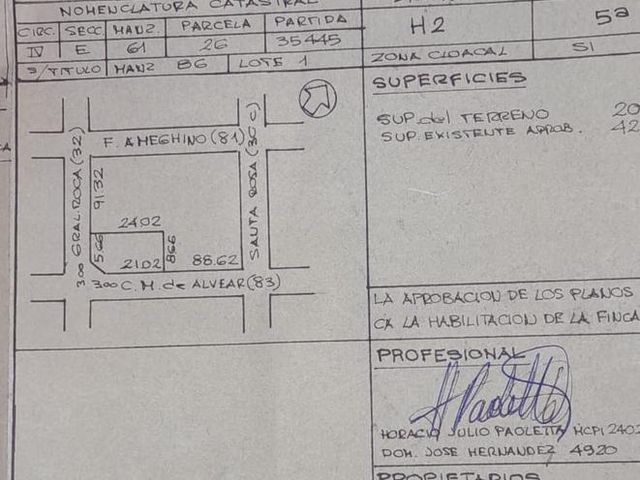 NOMENCLATURA CATASTRAL
CIRC. SECC MANZ. PARCELA PARTIDA
IV E 61 26 35445
S/TITULO MANZ 86 LOTE 1
H2 5ª
ZONA CLOACAL SI
SUPERFICIES
SUP. del TERRENO 20
SUP. EXISTENTE APROB. 42
F. AMEGHINO (81)
GRAL. ROCA (32)
SANTA ROSA (30 C)
91.32
24.02
5.66
8.66
21.02
88.62
300
300 C. M. de ALVEAR (83)
LA APROBACION DE LOS PLANOS
CA LA HABILITACION DE LA FINCA
PROFESIONAL
HORACIO JULIO PAOLETTA MCPI 2402
DOM. JOSE HERNANDEZ 4920
PROPIETARIOS